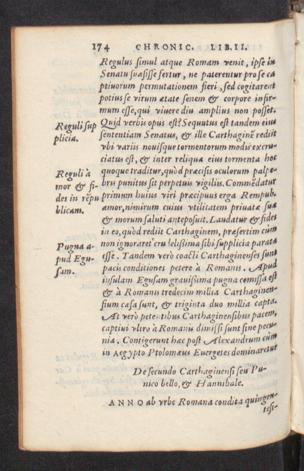 174 CHRONIC. LIB. II.
Regulus simul atque Romam venit, ipse in
Senatu suasisse fertur, ne paterentur pro se ca
ptiuorum permutationem fieri, sed cogitarent
potius se virum ætate senem & corpore infir-
mum esse, qui viuere diu amplius non posset.
Reguli sup
plicia.
Quid verbis opus est? Sequutus est tandem eius
sententiam Senatus, & ille Carthaginẽ rediit
vbi variis nouisque tormentorum modis excru-
ciatus est, & inter reliqua eius tormenta hoc
quoque traditur, quòd præcisis oculorum palpe-
Reguli a-
mor & fi-
des in rẽpu
blicam.
bris punitus sit perpetuis vigiliis. Commẽdatur
primum huius viri præcipuus erga Rempub.
amor, nimirum cuius vtilitatem priuatæ suæ
& morum saluti anteposuit. Laudatur & fides
in eo, quòd rediit Carthaginem, præsertim cùm
non ignoraret crudelissima sibi supplicia parata
Pugna a-
pud Egu-
sam.
esse. Tandem verò coacti Carthaginenses sunt
pacis conditiones petere à Romanis. Apud
insulam Egusam grauissima pugna comissa est
& à Romanis tredecim millia Carthaginen-
sium cæsa sunt, & triginta duo millia capta.
At verò petentibus Carthaginensibus pacem,
captiui vltro à Romanis dimissi sunt sine pecu-
nia. Contigerunt hæc post Alexandrum cùm
in Aegypto Ptolomæus Euergetes dominaretur
De secundo Carthaginensi seu Pu-
nico bello, & Hannibale.
ANNO ab vrbe Romana condita quingen-
tesi-